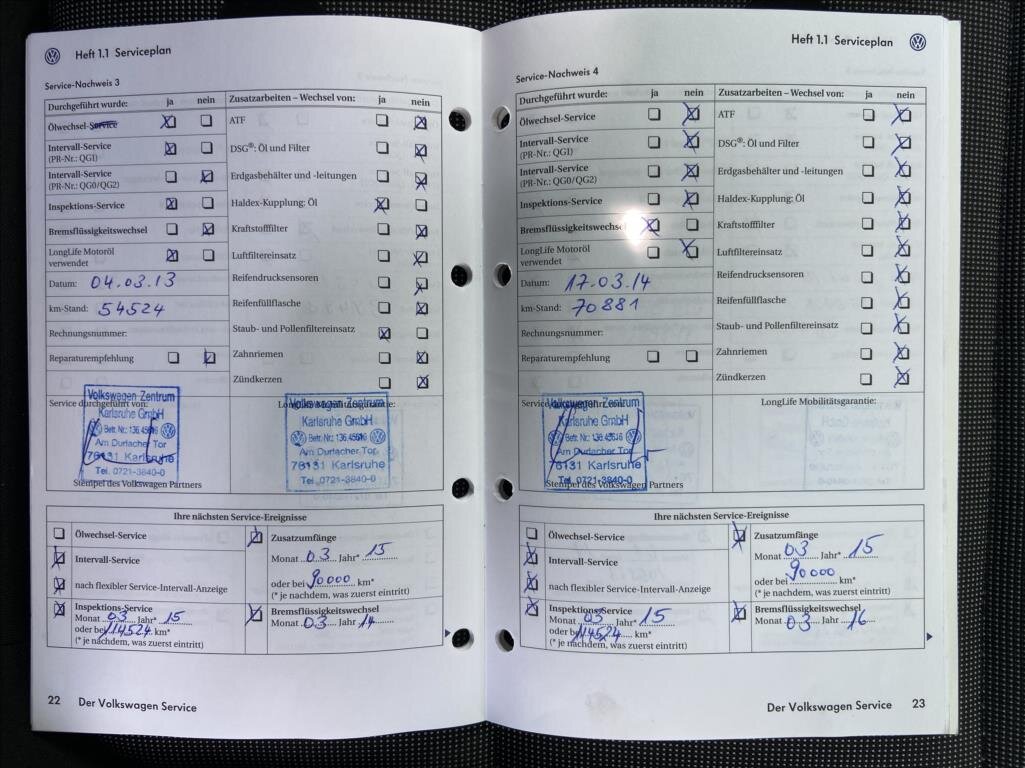 Heft 1.1 Serviceplan
Service-Nachweis 3
Durchgeführt wurde: ja nein
Ölwechsel-Service
Intervall-Service
(PR-Nr.: QG1)
Intervall-Service
(PR-Nr.: QG0/QG2)
Inspektions-Service
Bremsflüssigkeitswechsel
LongLife Motoröl
verwendet
Datum: 04.03.13
km-Stand: 54524
Rechnungsnummer:
Reparaturempfehlung
Zusatzarbeiten – Wechsel von: ja nein
ATF
DSG®: Öl und Filter
Erdgasbehälter und -leitungen
Haldex-Kupplung: Öl
Kraftstofffilter
Luftfiltereinsatz
Reifendrucksensoren
Reifenfüllflasche
Staub- und Pollenfiltereinsatz
Zahnriemen
Zündkerzen
Service durchgeführt von:
Volkswagen Zentrum
Karlsruhe GmbH
Betr. Nr.: 136.45616
Am Durlacher Tor
76131 Karlsruhe
Tel. 0721-3840-0
Stempel des Volkswagen Partners
LongLife Mobilitätsgarantie:
Volkswagen Zentrum
Karlsruhe GmbH
Betr. Nr.: 136.45616
Am Durlacher Tor
76131 Karlsruhe
Tel. 0721-3840-0
Ihre nächsten Service-Ereignisse
Ölwechsel-Service
Intervall-Service
nach flexibler Service-Intervall-Anzeige
Inspektions-Service
Monat 03 Jahr* 15
oder bei 114524 km*
(* je nachdem, was zuerst eintritt)
Zusatzumfänge
Monat 03 Jahr* 15
oder bei 90000 km*
(* je nachdem, was zuerst eintritt)
Bremsflüssigkeitswechsel
Monat 03 Jahr 14
22 Der Volkswagen Service
Heft 1.1 Serviceplan
Service-Nachweis 4
Durchgeführt wurde: ja nein
Ölwechsel-Service
Intervall-Service
(PR-Nr.: QG1)
Intervall-Service
(PR-Nr.: QG0/QG2)
Inspektions-Service
Bremsflüssigkeitswechsel
LongLife Motoröl
verwendet
Datum: 17.03.14
km-Stand: 70881
Rechnungsnummer:
Reparaturempfehlung
Zusatzarbeiten – Wechsel von: ja nein
ATF
DSG®: Öl und Filter
Erdgasbehälter und -leitungen
Haldex-Kupplung: Öl
Kraftstofffilter
Luftfiltereinsatz
Reifendrucksensoren
Reifenfüllflasche
Staub- und Pollenfiltereinsatz
Zahnriemen
Zündkerzen
Volkswagen Zentrum
Karlsruhe GmbH
Betr. Nr.: 136.45616
Am Durlacher Tor
76131 Karlsruhe
Tel. 0721-3840-0
Stempel des Volkswagen Partners
LongLife Mobilitätsgarantie:
Ihre nächsten Service-Ereignisse
Ölwechsel-Service
Intervall-Service
nach flexibler Service-Intervall-Anzeige
Inspektions-Service
Monat 03 Jahr* 15
oder bei 114524 km*
(* je nachdem, was zuerst eintritt)
Zusatzumfänge
Monat 03 Jahr* 15
oder bei 90000 km*
(* je nachdem, was zuerst eintritt)
Bremsflüssigkeitswechsel
Monat 03 Jahr 16
Der Volkswagen Service 23